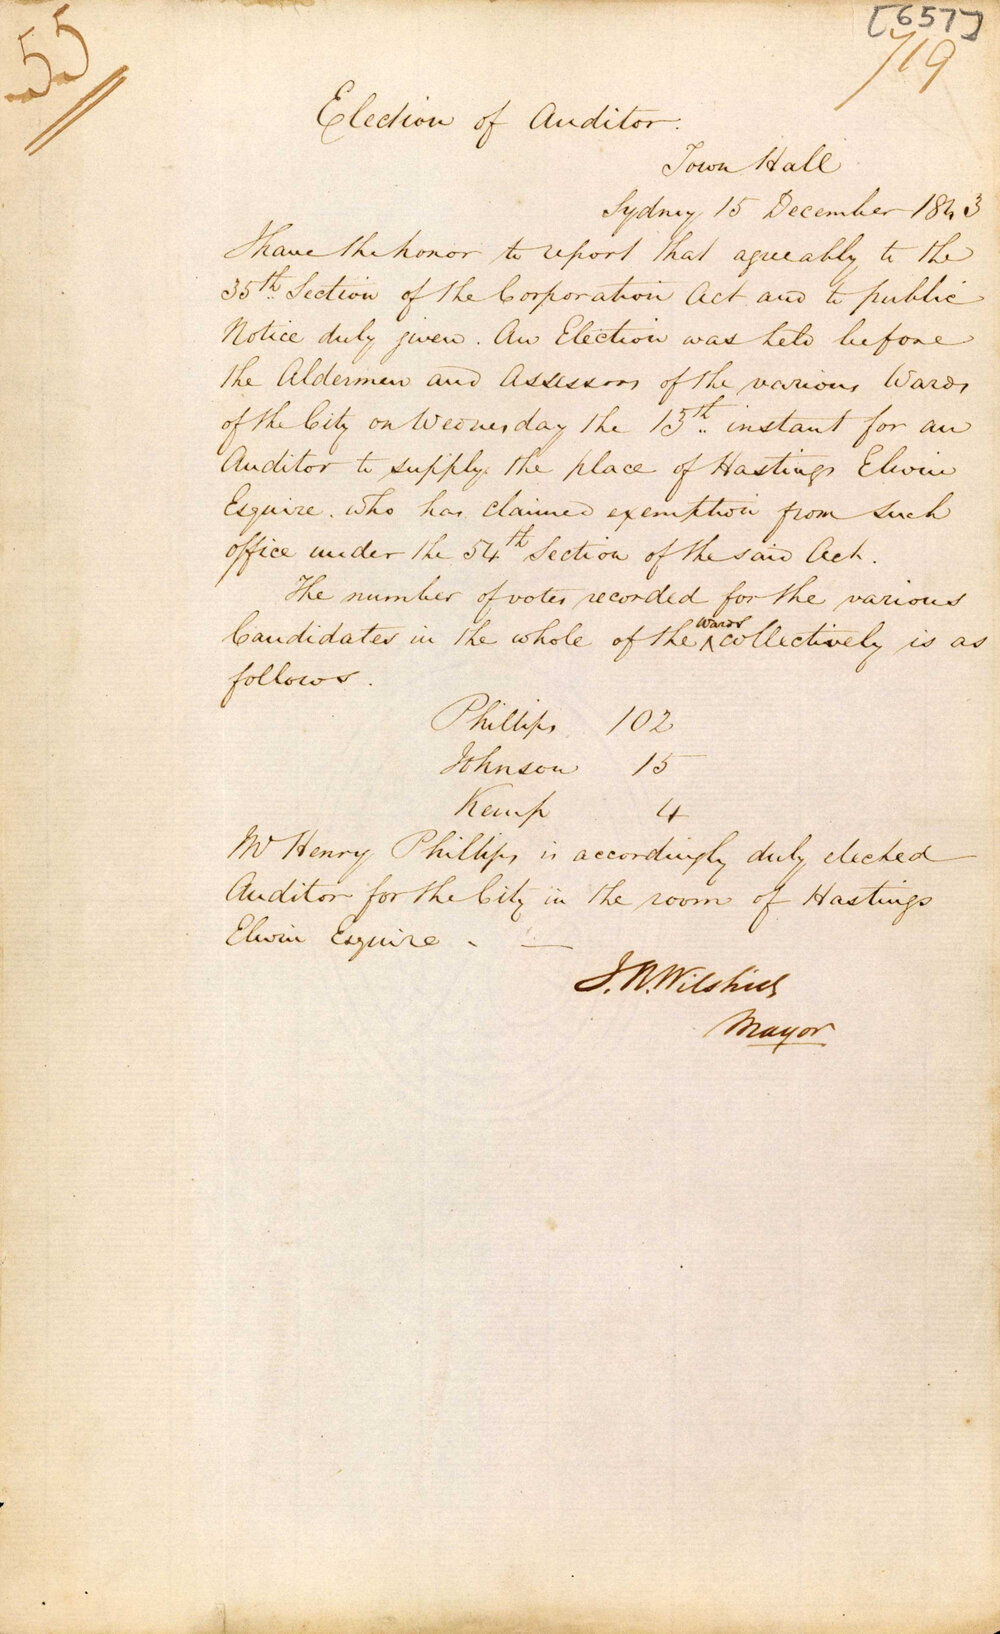 55
[657]
719
Election of Auditor.
Town Hall
Sydney 15 December 1843
I have the honor to report that agreeably to the
35th. Section of the Corporation Act and to public
Notice duly given. An Election was held before
the Aldermen and Assessors of the various Wards
of the City on Wednesday the 13th. instant for an
Auditor to supply the place of Hastings Elwin
Esquire. who has claimed exemption from such
office under the 54th Section of the said Act.
The number of votes recorded for the various
Candidates in the whole of the wards collectively is as
follows.
Phillips 102
Johnson 15
Kemp 4
Mr Henry Phillips is accordingly duly elected
Auditor for the City in the room of Hastings
Elwin Esquire. —
J. R. Wilshire
Mayor